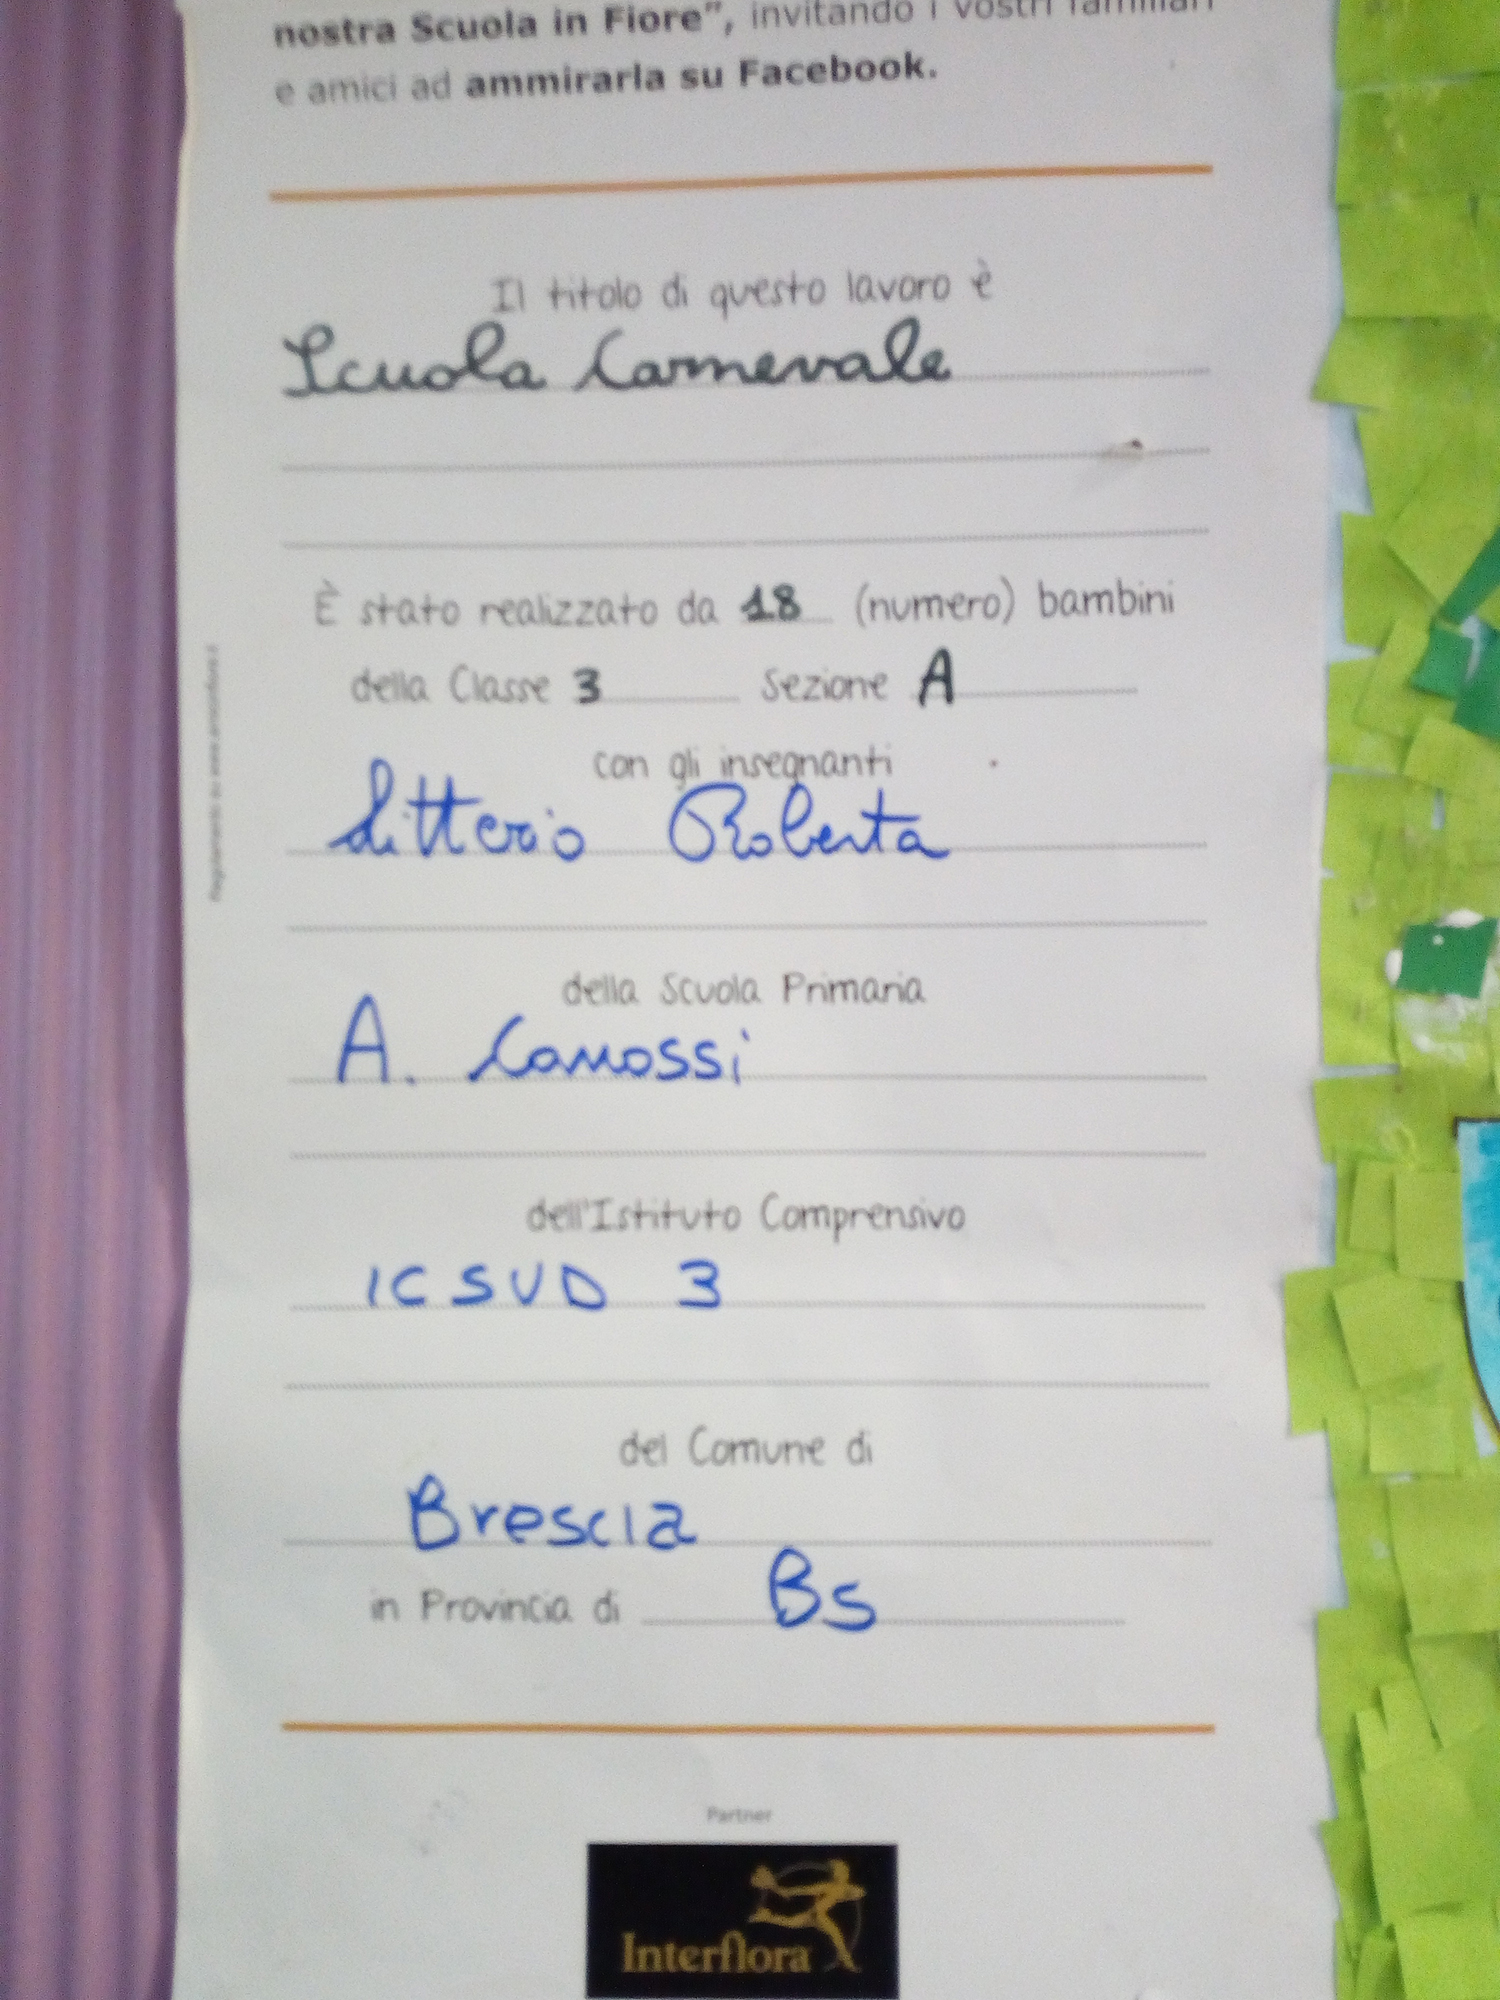 nostra Scuola in Fiore", invitando i vostri familiari
e amici ad ammirarla su Facebook.
Il titolo di questo lavoro è
Scuola Carnevale
È stato realizzato da 18 (numero) bambini
della Classe 3 Sezione A
con gli insegnanti
Litterio Roberta
della Scuola Primaria
A. Canossi
dell'Istituto Comprensivo
IC SUD 3
del Comune di
Brescia
in Provincia di Bs
Partner
Interflora